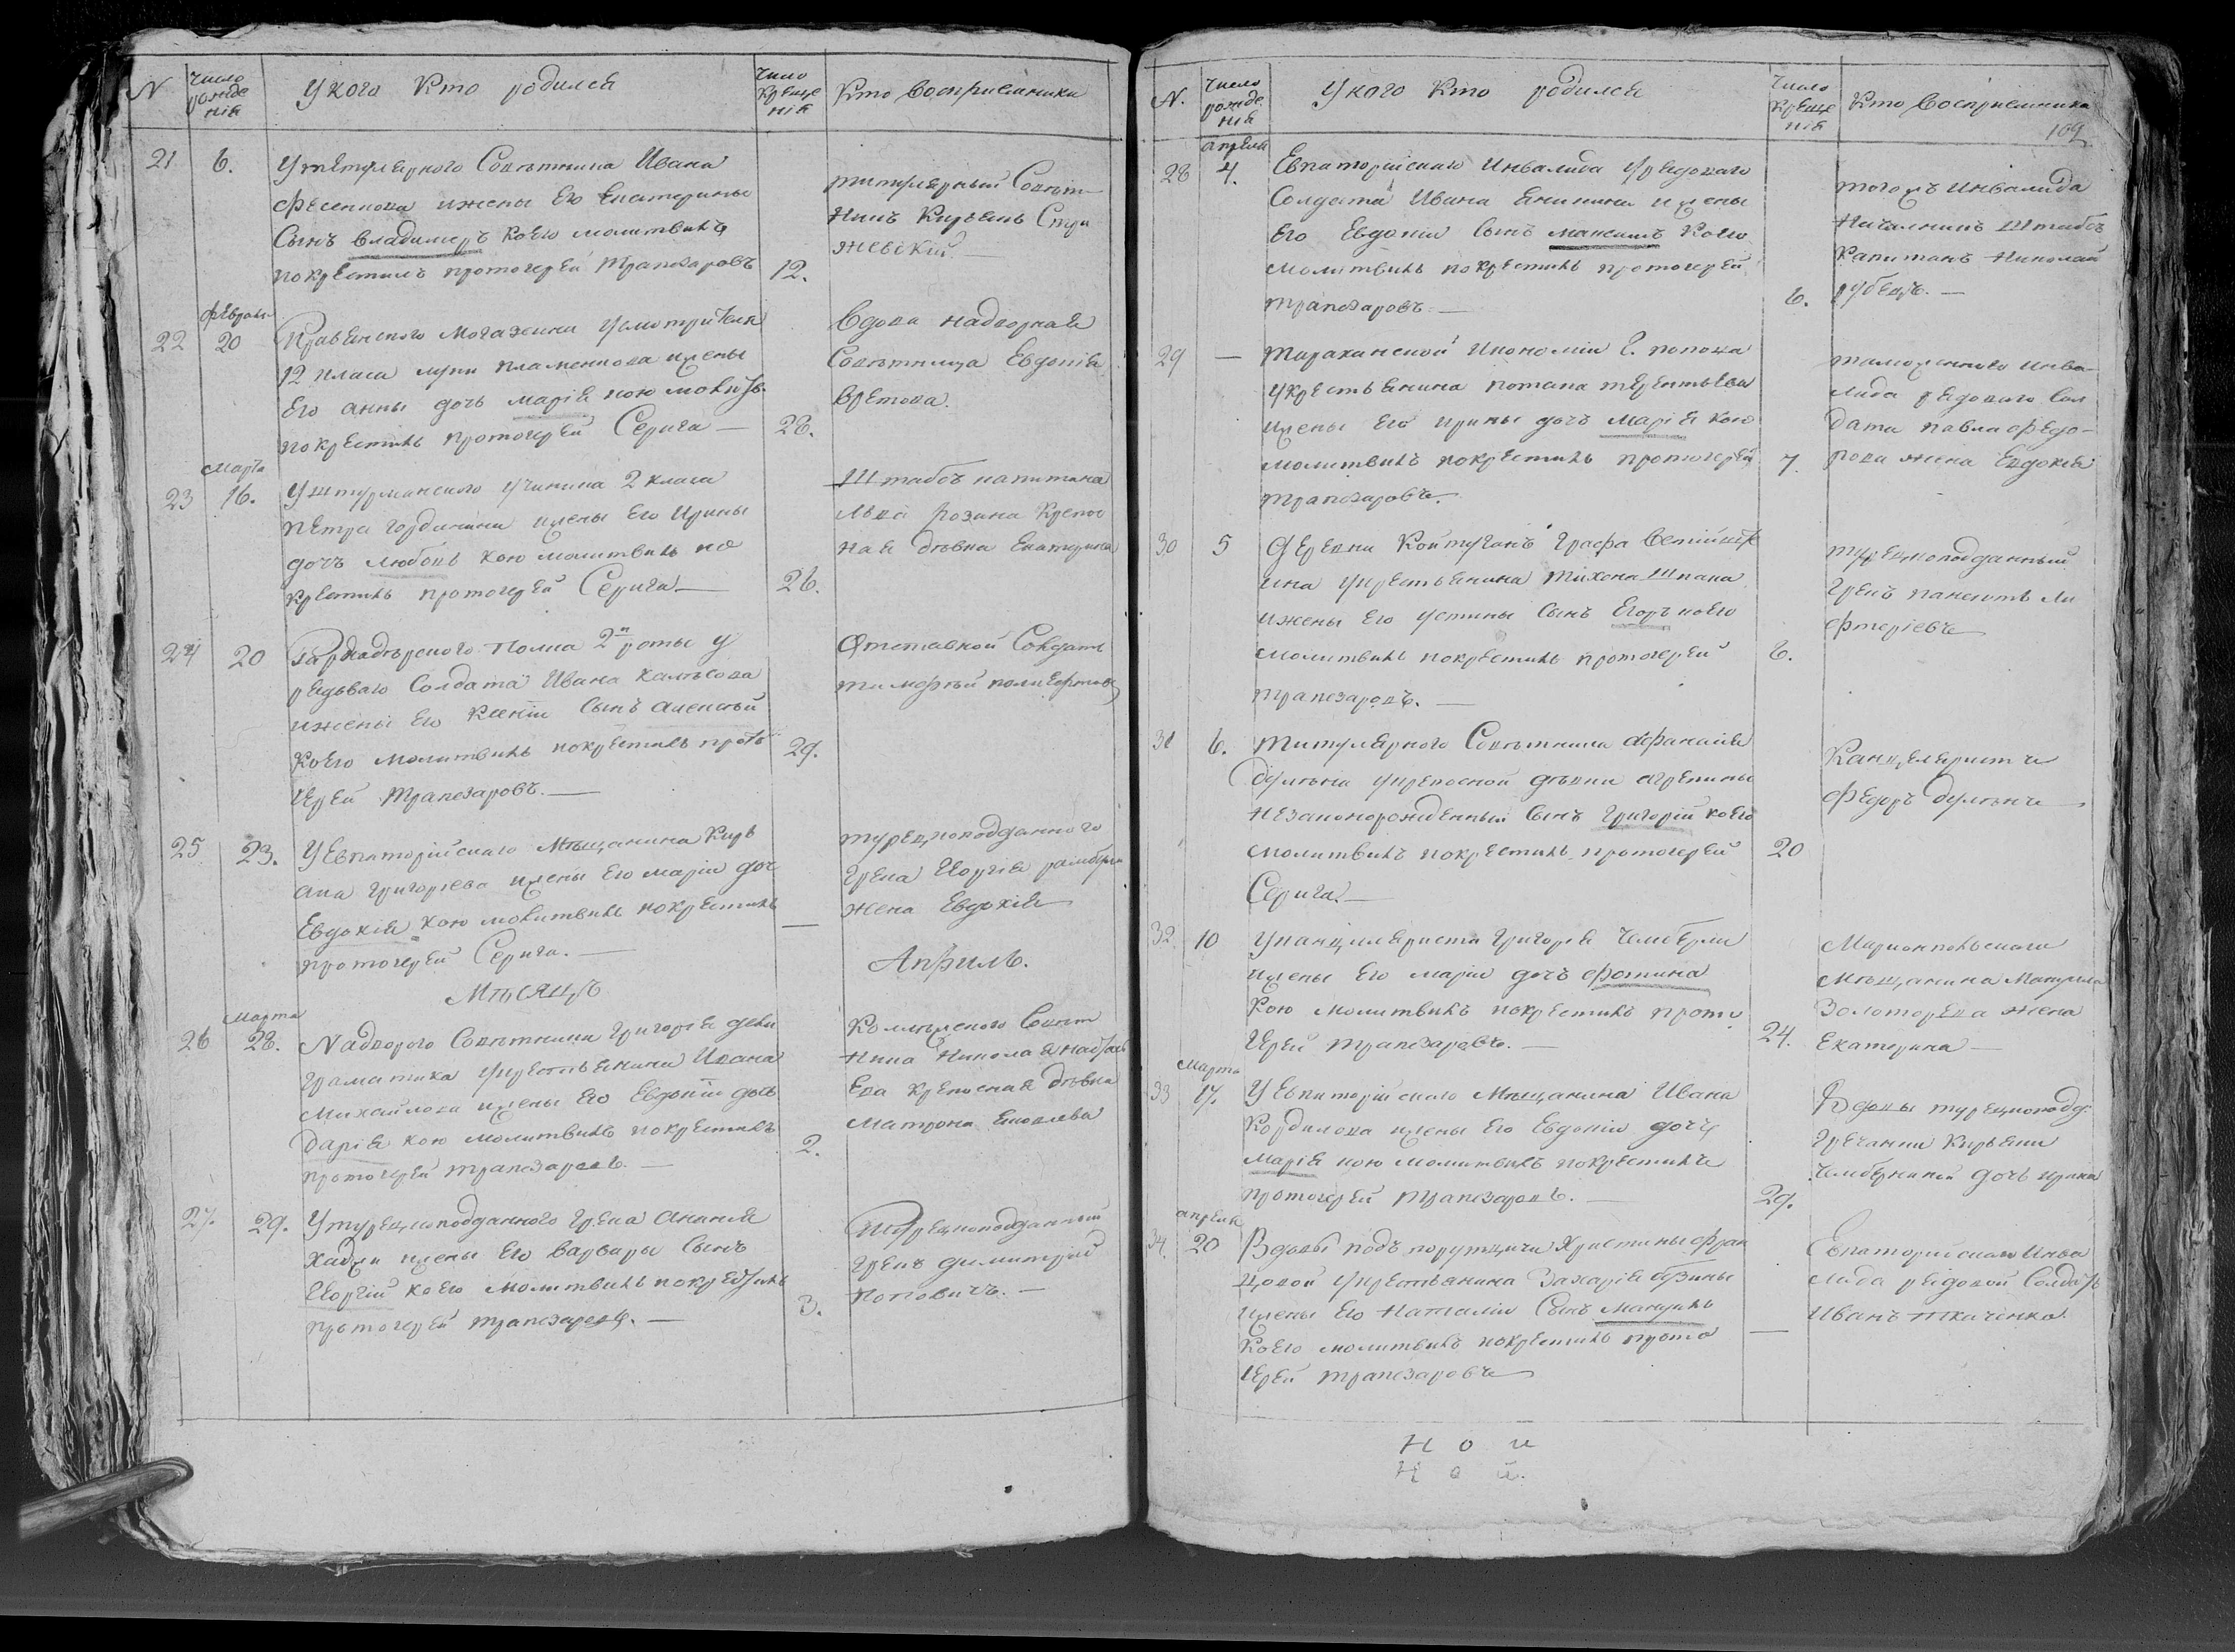 N
Число рожде нія
У кого Кто родился
Число Креще нія
Кто Восприемники
21 6. У титулярного Советника Ивана
Фесенкова и жены Его Екатерины
Сынъ Владимеръ коего молитвилъ
покрестилъ протоиерей Трапезаровъ 12.
титулярный Совет
никъ Кирьякъ Стри
жевскій
феврал
22 20 магазеина усмотрителя
12 класа Пламенкова и жены
Его Анны дочь Марія кою молитв
покрестилъ протоиерей Серига — 28.
Вдова надворная
Советница Евдокія
Вретова.
Марта
23 16. У штурманского ученика 2 класа
Петра Гордикина и жены Его Ирины
дочъ Любовь кою молитвилъ по
крестилъ протоиерей Серига — 26.
Штабсъ капитана
Льва Розина крепос
ная девка Екатерина
24 20 полка 2й роты у
редоваго Солдата Ивана
и жены Его Ксеніи Сынъ Алексей
коего молитвилъ покрестилъ прото
иерей Трапезаровъ. — 29.
Отставной Солдатъ
Тимофей
25 23. У Евпаторійскаго Мещанина Кирь
яка Григорьева и жены Его Маріи доч
Евдокія кою молитвилъ покрестилъ —
протоиерей Серига. —
турецкоподданного
Грека Георгія
жена Евдокія
Месяцъ
Апрель.
Марта
26 28. Надворого Советника Григорія
Граматика у крестьянина Ивана
Михайлова и жены Его Евдокіи дочь
Дарія кою молитвилъ покрестилъ 2.
протоиерей Трапезаровъ. —
Колежского Совет
ника Николая
ева крепосная девка
Матрона Яковлева
27. 29. У турецкоподданного Грека Ананія
Хаджи и жены Его Варвары Сынъ
Георгій коего молитвилъ покрестилъ 3.
протоиерей Трапезаровъ. —
Турецкоподданный
Грекъ Димитрій
Поповичъ. —
N.
Число рожде нія
У кого Кто родился
Число Креще нія
Кто Восприемники
169
апреля
28 4. Евпаторійскаго Инвалида У редоваго
Солдата Ивана Яникина и жены
Его Евдокіи Сынъ Максимъ коего
молитвилъ покрестилъ протоиерей
Трапезаровъ. — 6.
того жъ Инвалида
Началникъ Штабсъ
Капитанъ Николай
Рубецъ. —
29 — Тараханской Икономіи Г. Попова
У крестьянина Потапа Терентьева
и жены Его Ирины дочъ Марія кою
молитвилъ покрестилъ протоиерей 7.
Трапезаровъ.
таможенного инва
лида редоваго Сол
дата Павла Федо-
рова жена Евдокія
30 5 Деревни Контуганъ Графа
ина У крестьянина Тихона Шпака
и жены Его Устины Сынъ Егоръ коего
молитвилъ покрестилъ протоиерей 6.
Трапезаровъ. —
турецкоподданный
Грекъ Панаготъ Ли
фтеріевъ
31 6. Титулярного Советника Афанасія
у крепосной девки Агрепины
незаконорожденный Сынъ Григорій коего
молитвилъ покрестилъ протоиерей 20
Серига. —
Канцеляристъ
Федоръ
32. 10 У канцеляриста Григорія
и жены Его Маріи дочъ Фотина
кою молитвилъ покрестилъ прото
иерей Трапезаровъ. — 24.
Мариопольскаго
Мещанина Мануила
Золоторева жена
Екатерина —
Марта
33 17. У Евпаторійского Мещанина Ивана
Кордилова и жены Его Евдокіи дочъ
Марія кою молитвилъ покрестилъ
протоиерей Трапезаровъ. — 29.
Вдовы турецкоподд.
Гречанки Кирьяки
дочь Ирина
апреля
34. 20 Вдовы подъ порутчичи Христины Фран
цовой У крестьянина Захарія Бузины
и жены Его Наталіи Сынъ Максимъ
коего молитвилъ покрестилъ прото —
иерей Трапезаровъ
Евпаторийскаго Инва
лида редовой Солдатъ
Иванъ Ткаченко.
Н о и
Н о й.